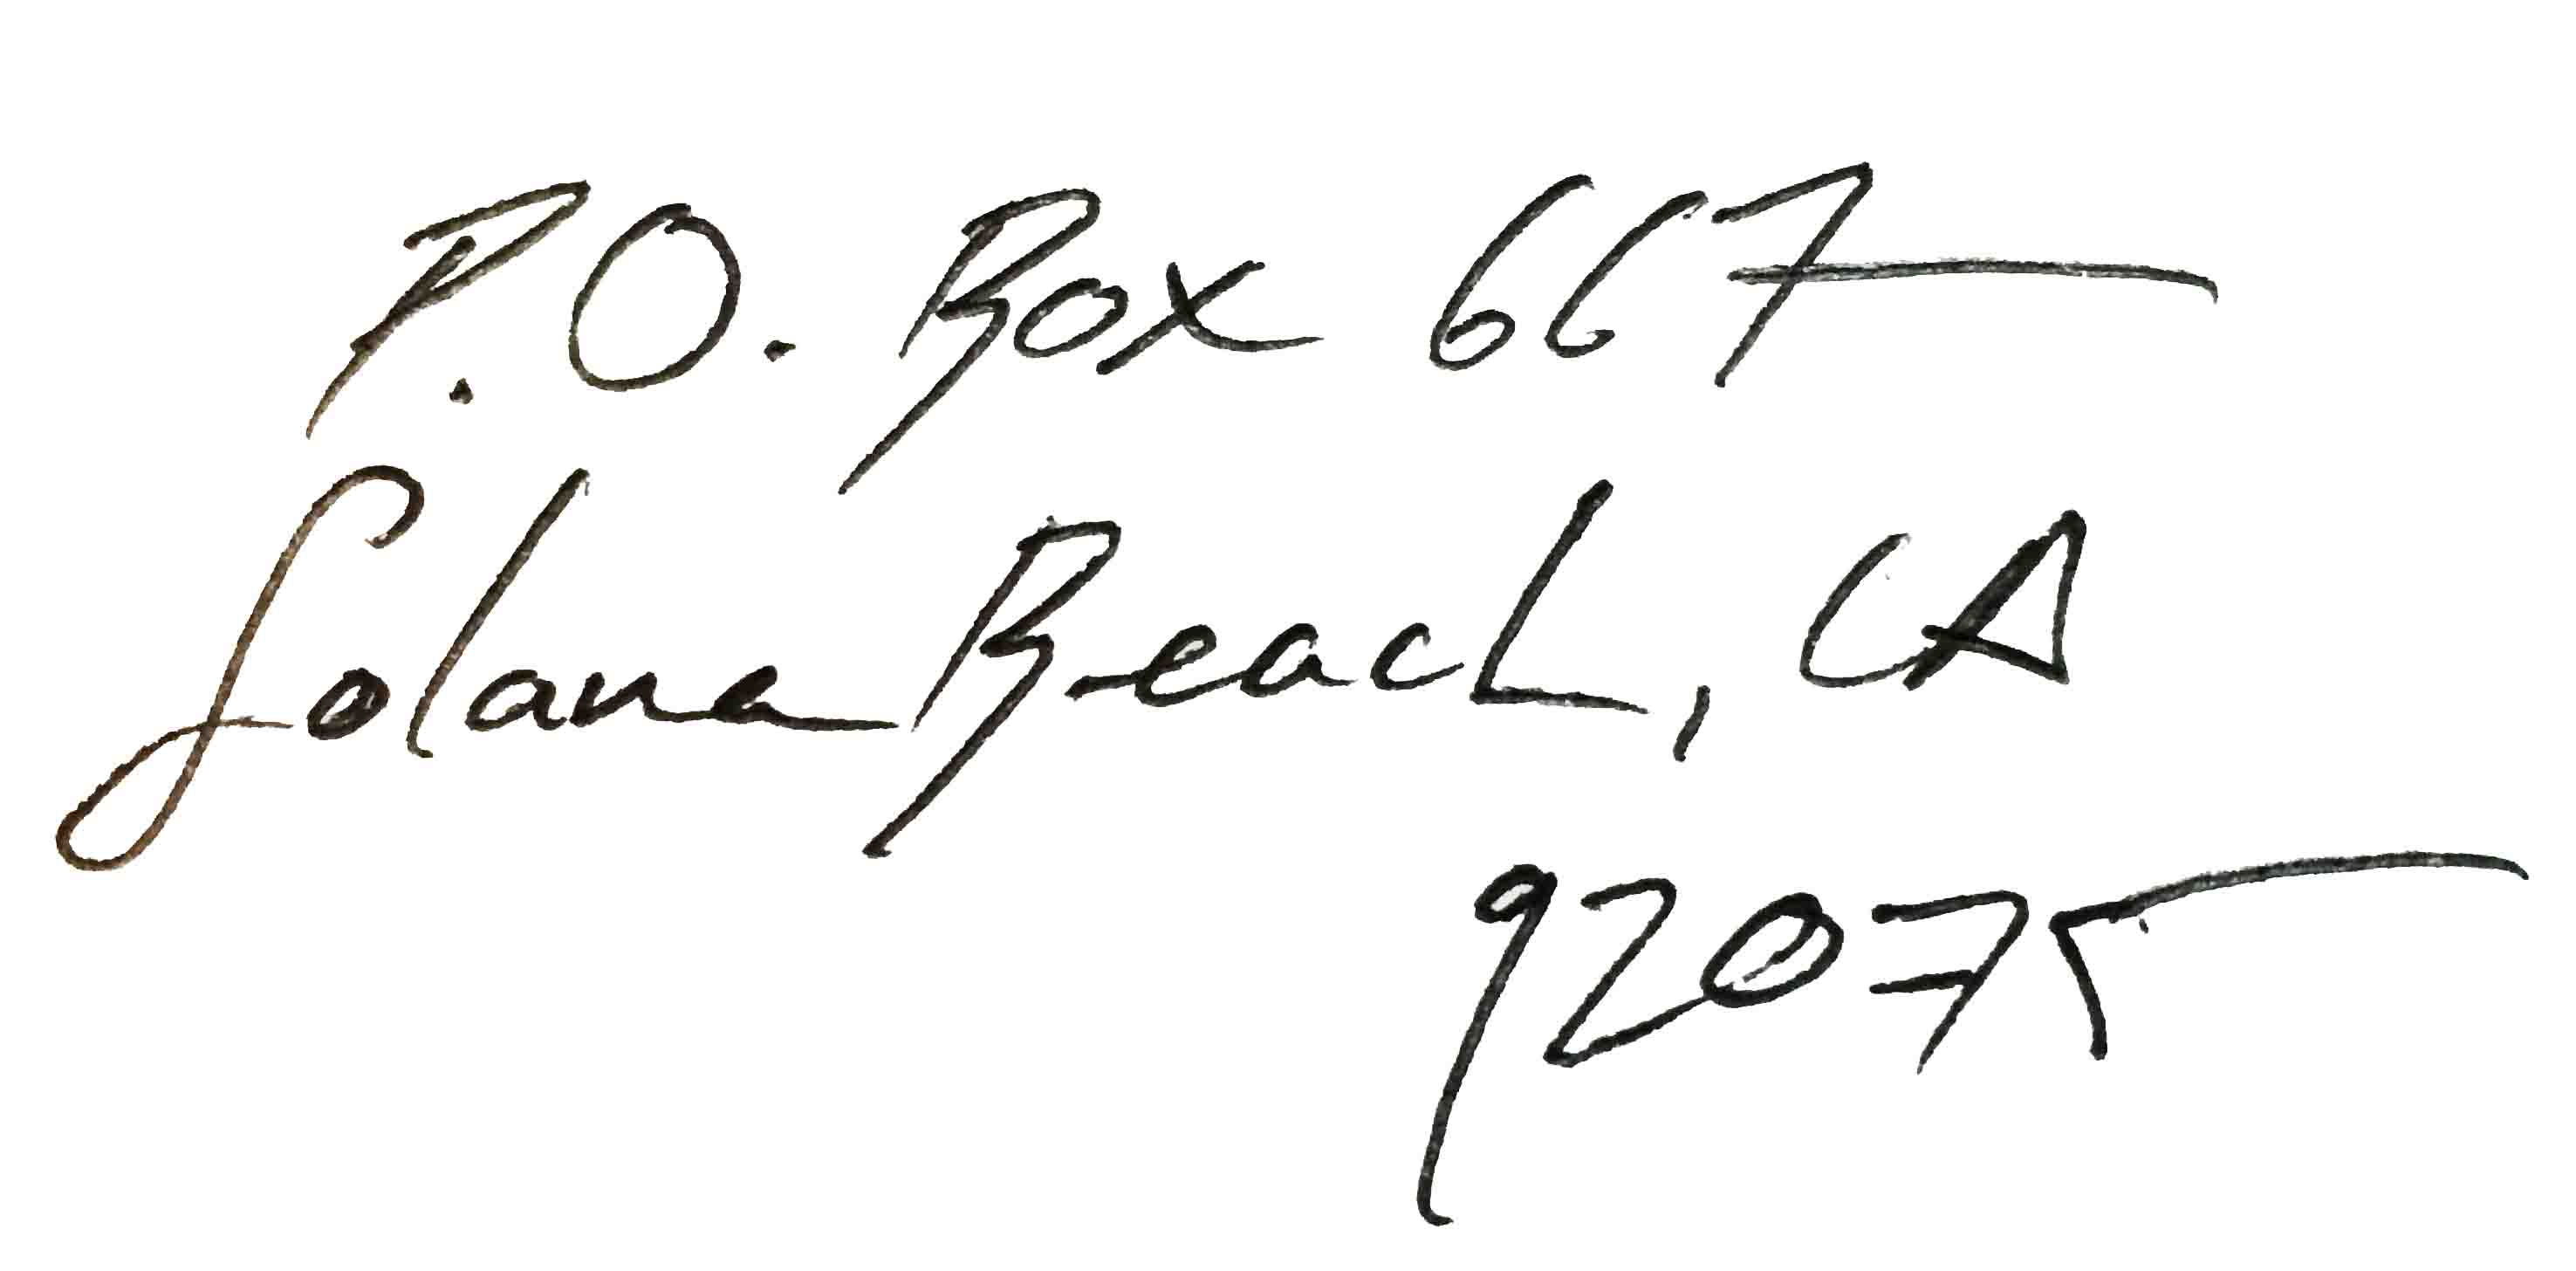 P.O. Box 667
Solana Beach, CA
92075